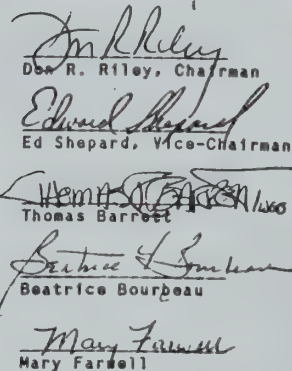 Don R Riley
Don R. Riley, Chairman
Edward Shepard
Ed Shepard, Vice-Chairman
Thomas Barrett
Beatrice Bourbeau
Beatrice Bourbeau
Mary Farwell
Mary Farwell